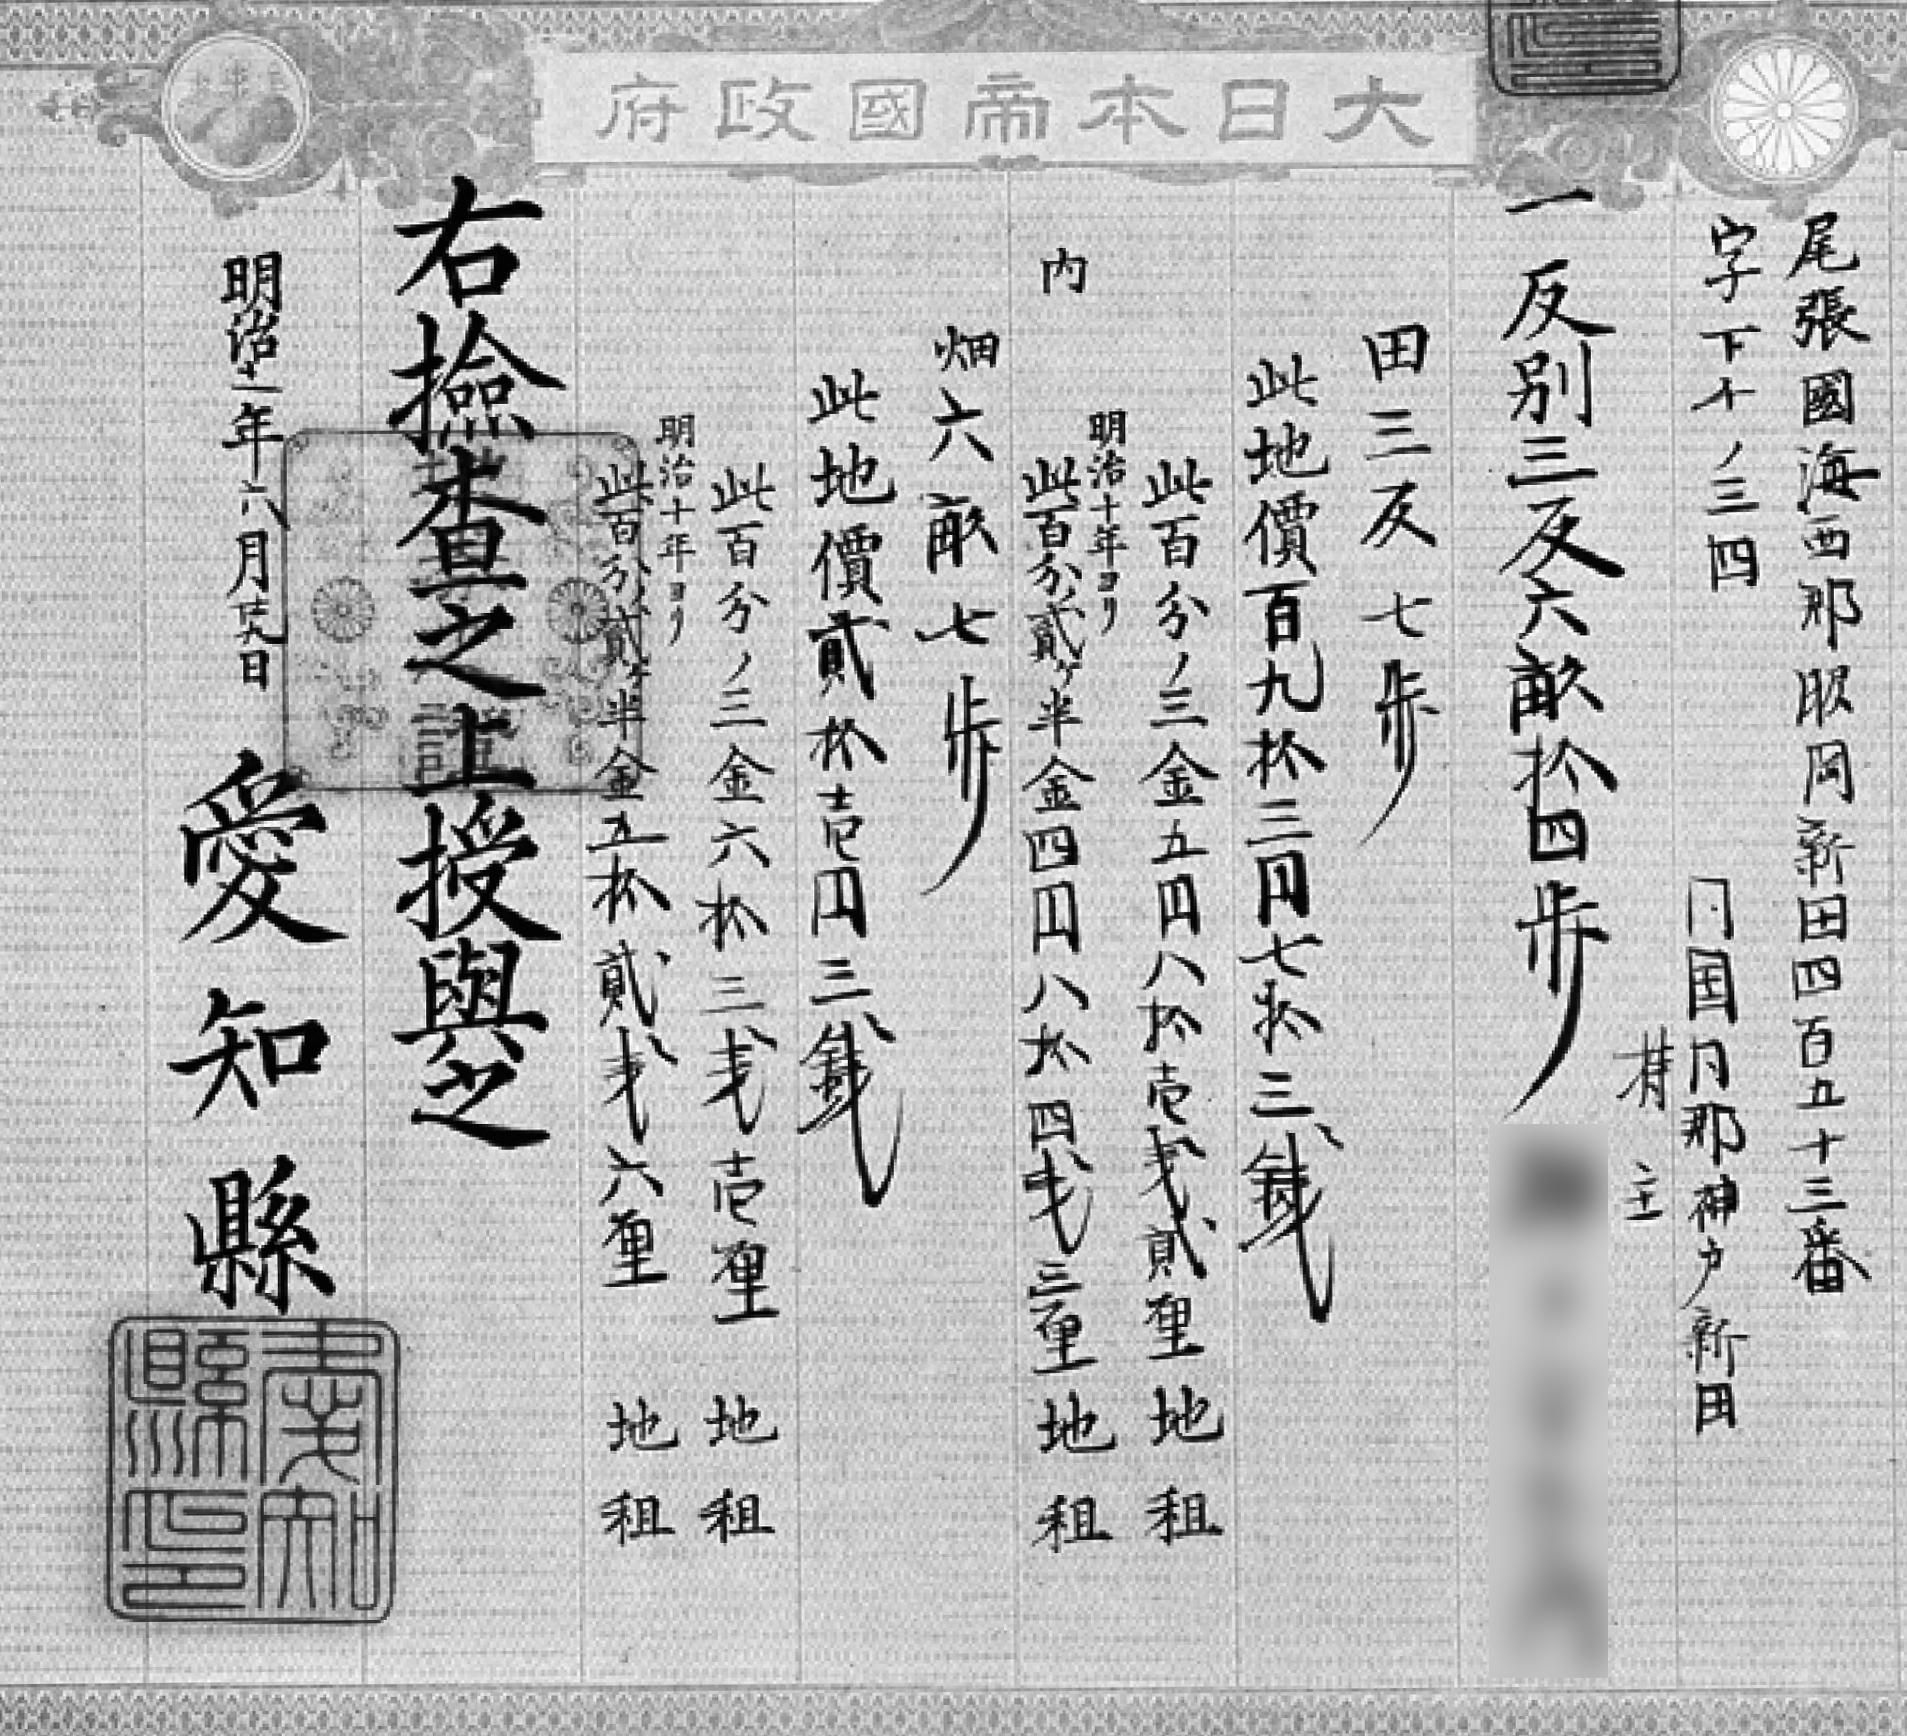 大日本帝國政府
尾張國海西郡服岡新田四百五十三番
字下十ノ三四
同国同郡神戸新田
持主
一反別三反六畝拾四歩
田三反七歩
此地價百九拾三円七拾三銭
此百分ノ三金五円八拾壱銭貳厘 地租
内
明治十年ヨリ
此百分ノ貳ヶ半金四円八拾四銭三厘 地租
畑六畝七歩
此地價貳拾壱円三銭
此百分ノ三金六拾三銭壱厘 地租
明治十年ヨリ
此百分ノ貳ヶ半金五拾貳銭六厘 地租
右撿査之上授與之
明治十一年六月廿九日
愛知縣
愛知縣印